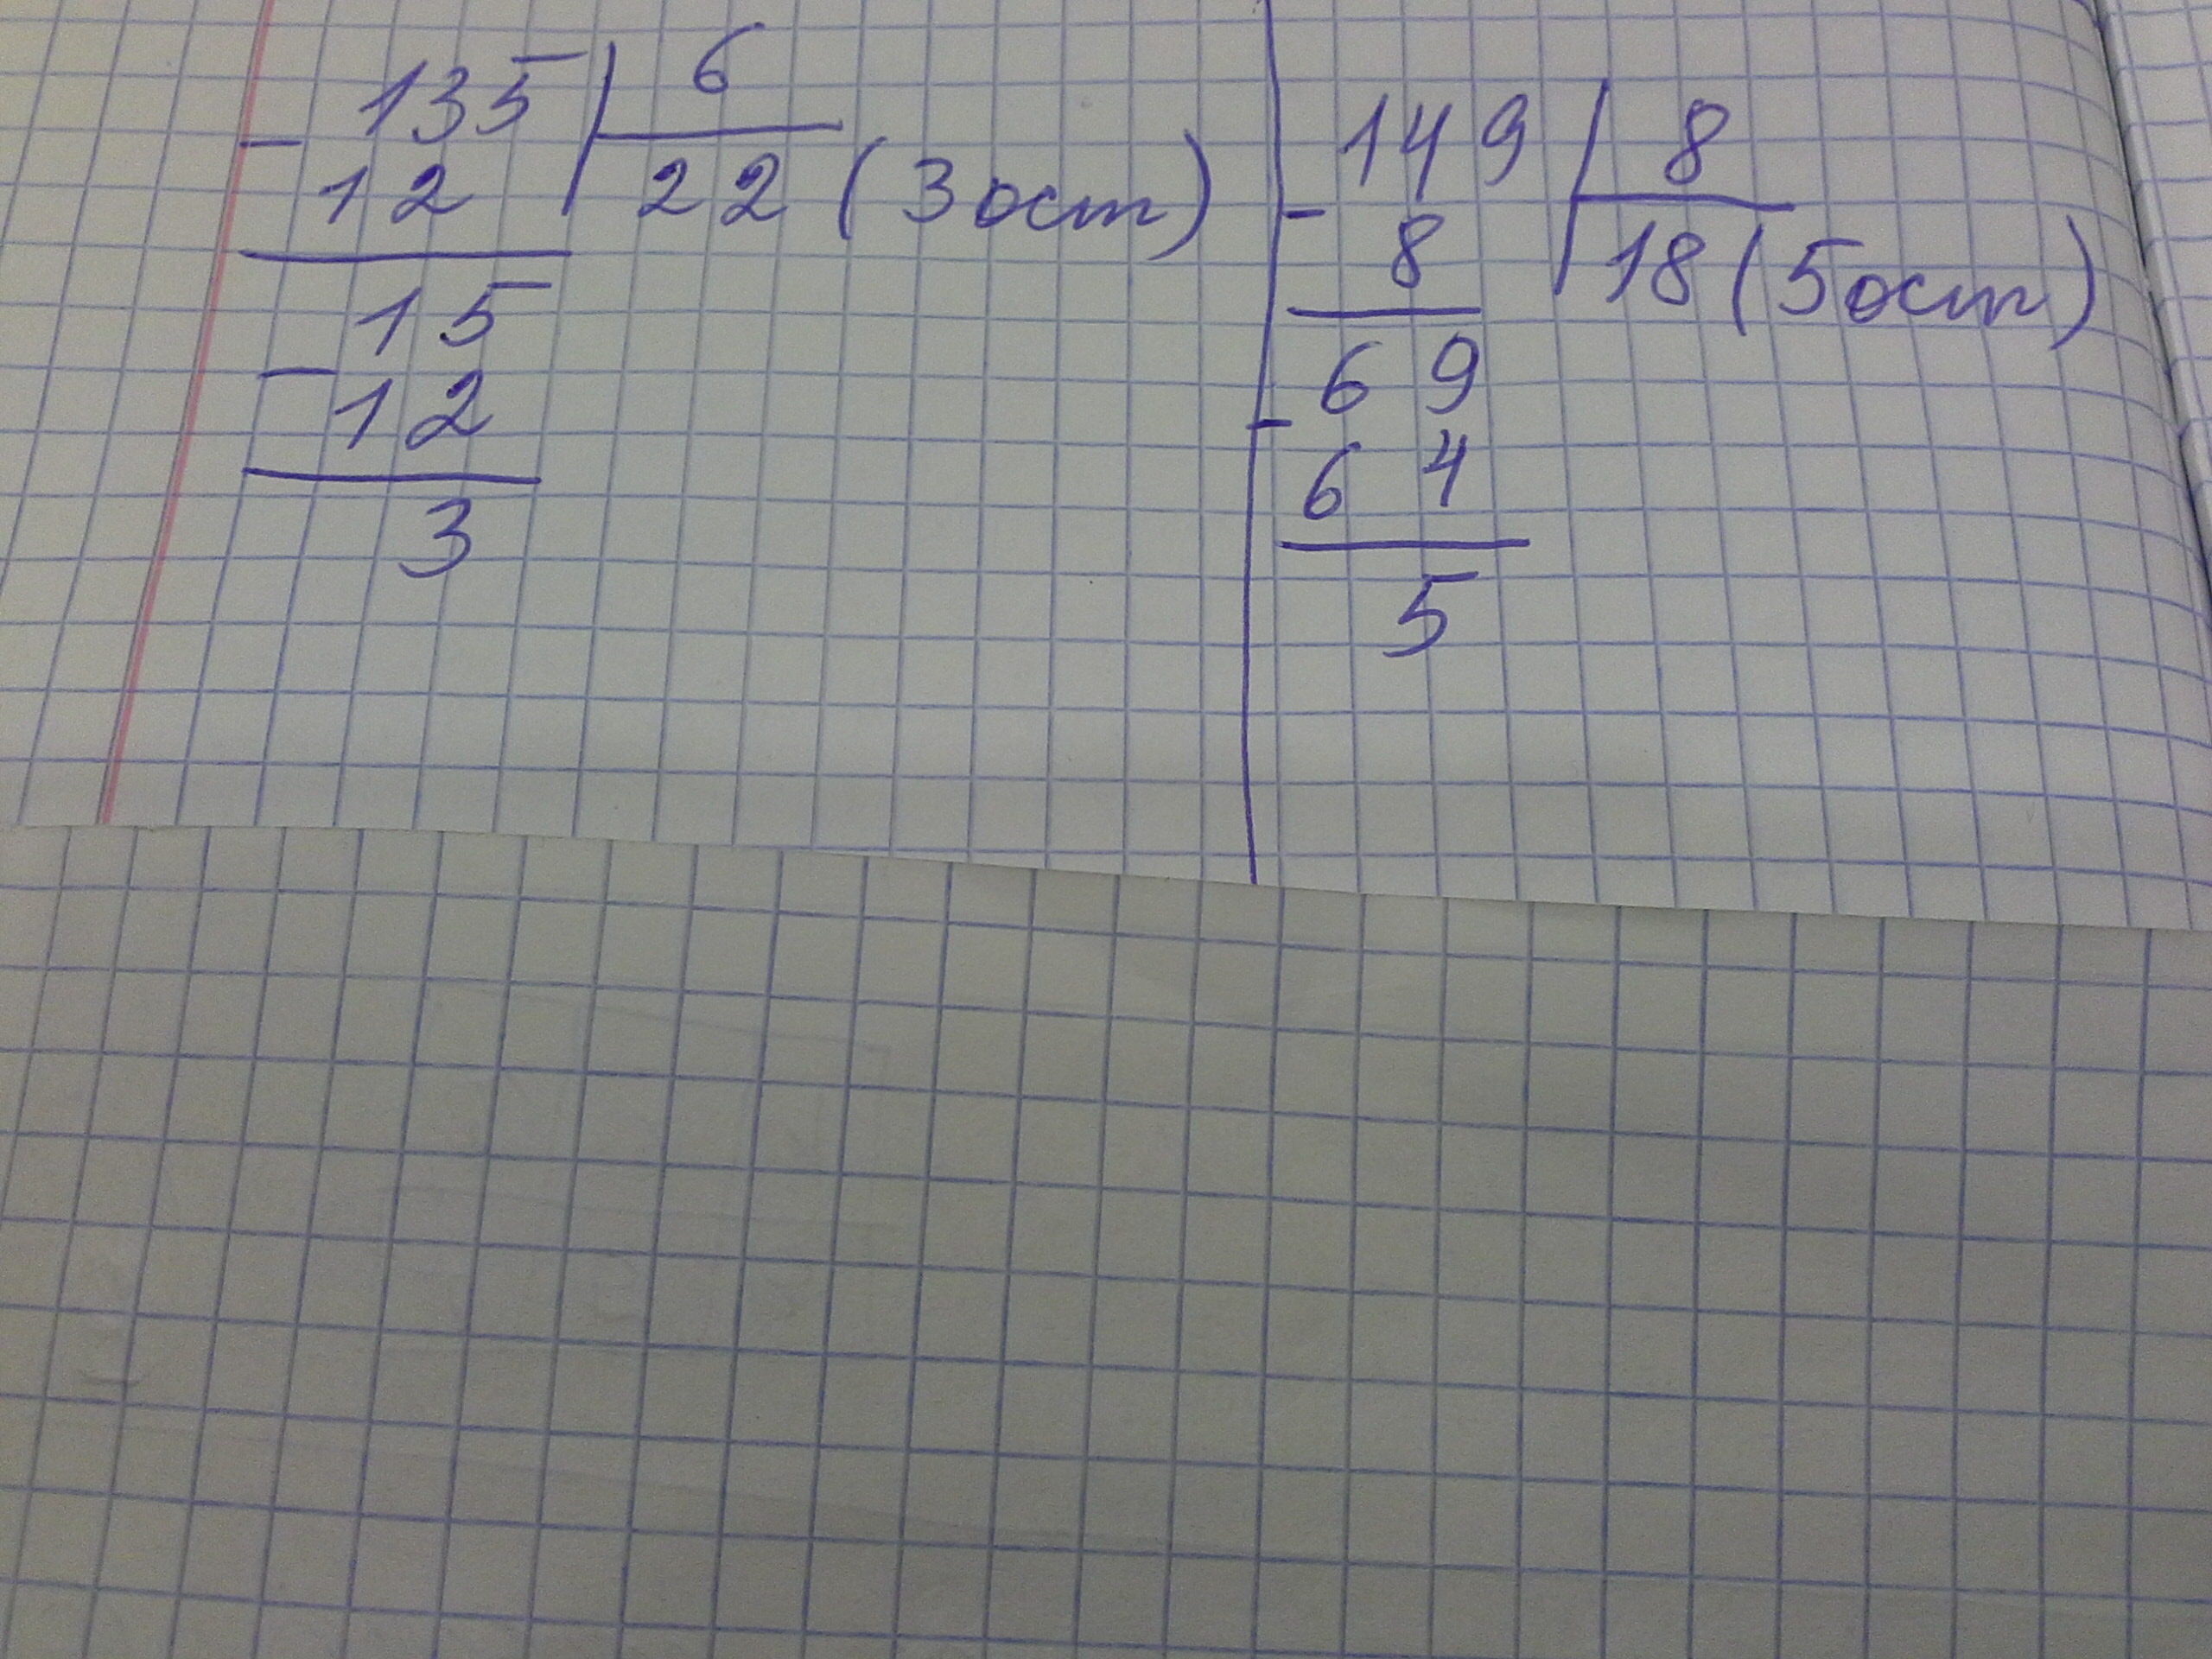 - 135 | 6
12 | 22 (3 ост)
- 15
12
3
- 149 | 8
8 | 18 (5 ост)
- 69
64
5